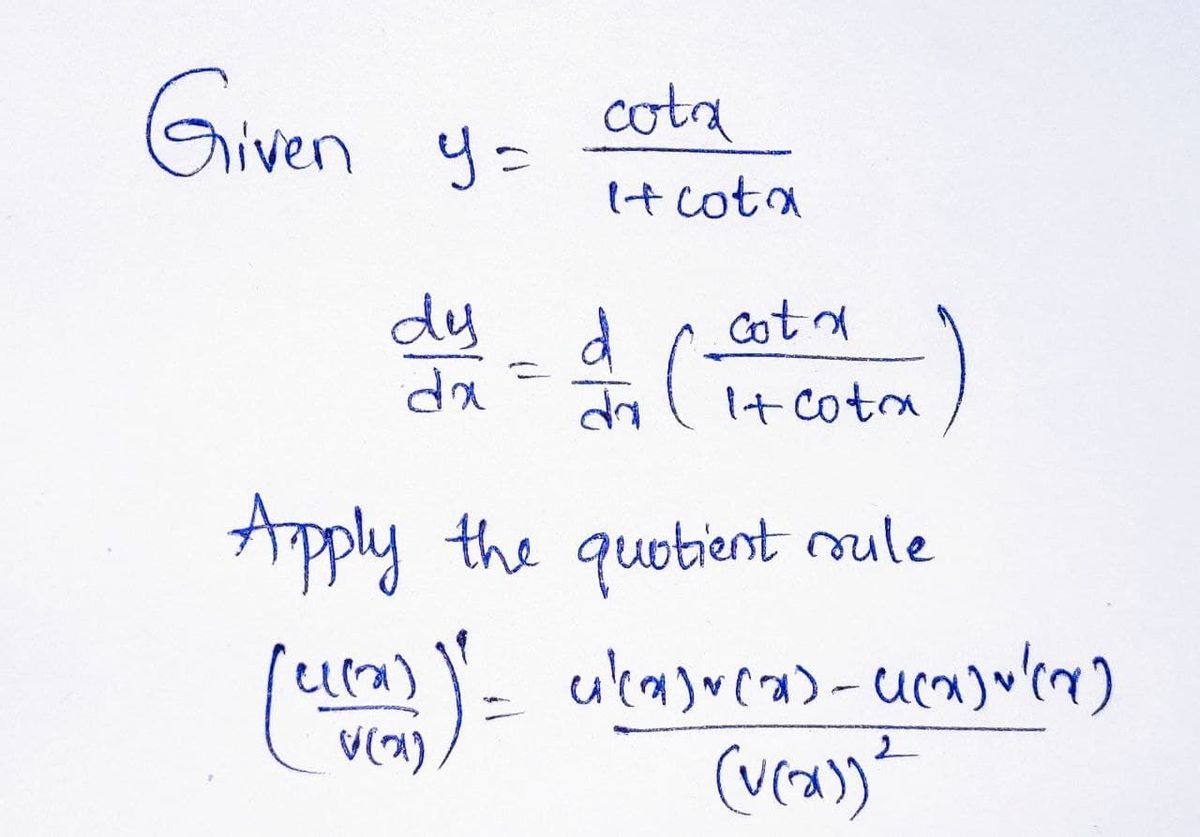 Given y = cotx / 1+cotx
dy/dx = d/dx ( cotx / 1+cotx )
Apply the quotient rule
( u(x) / v(x) )' = u'(x)v(x) - u(x)v'(x) / (v(x))²